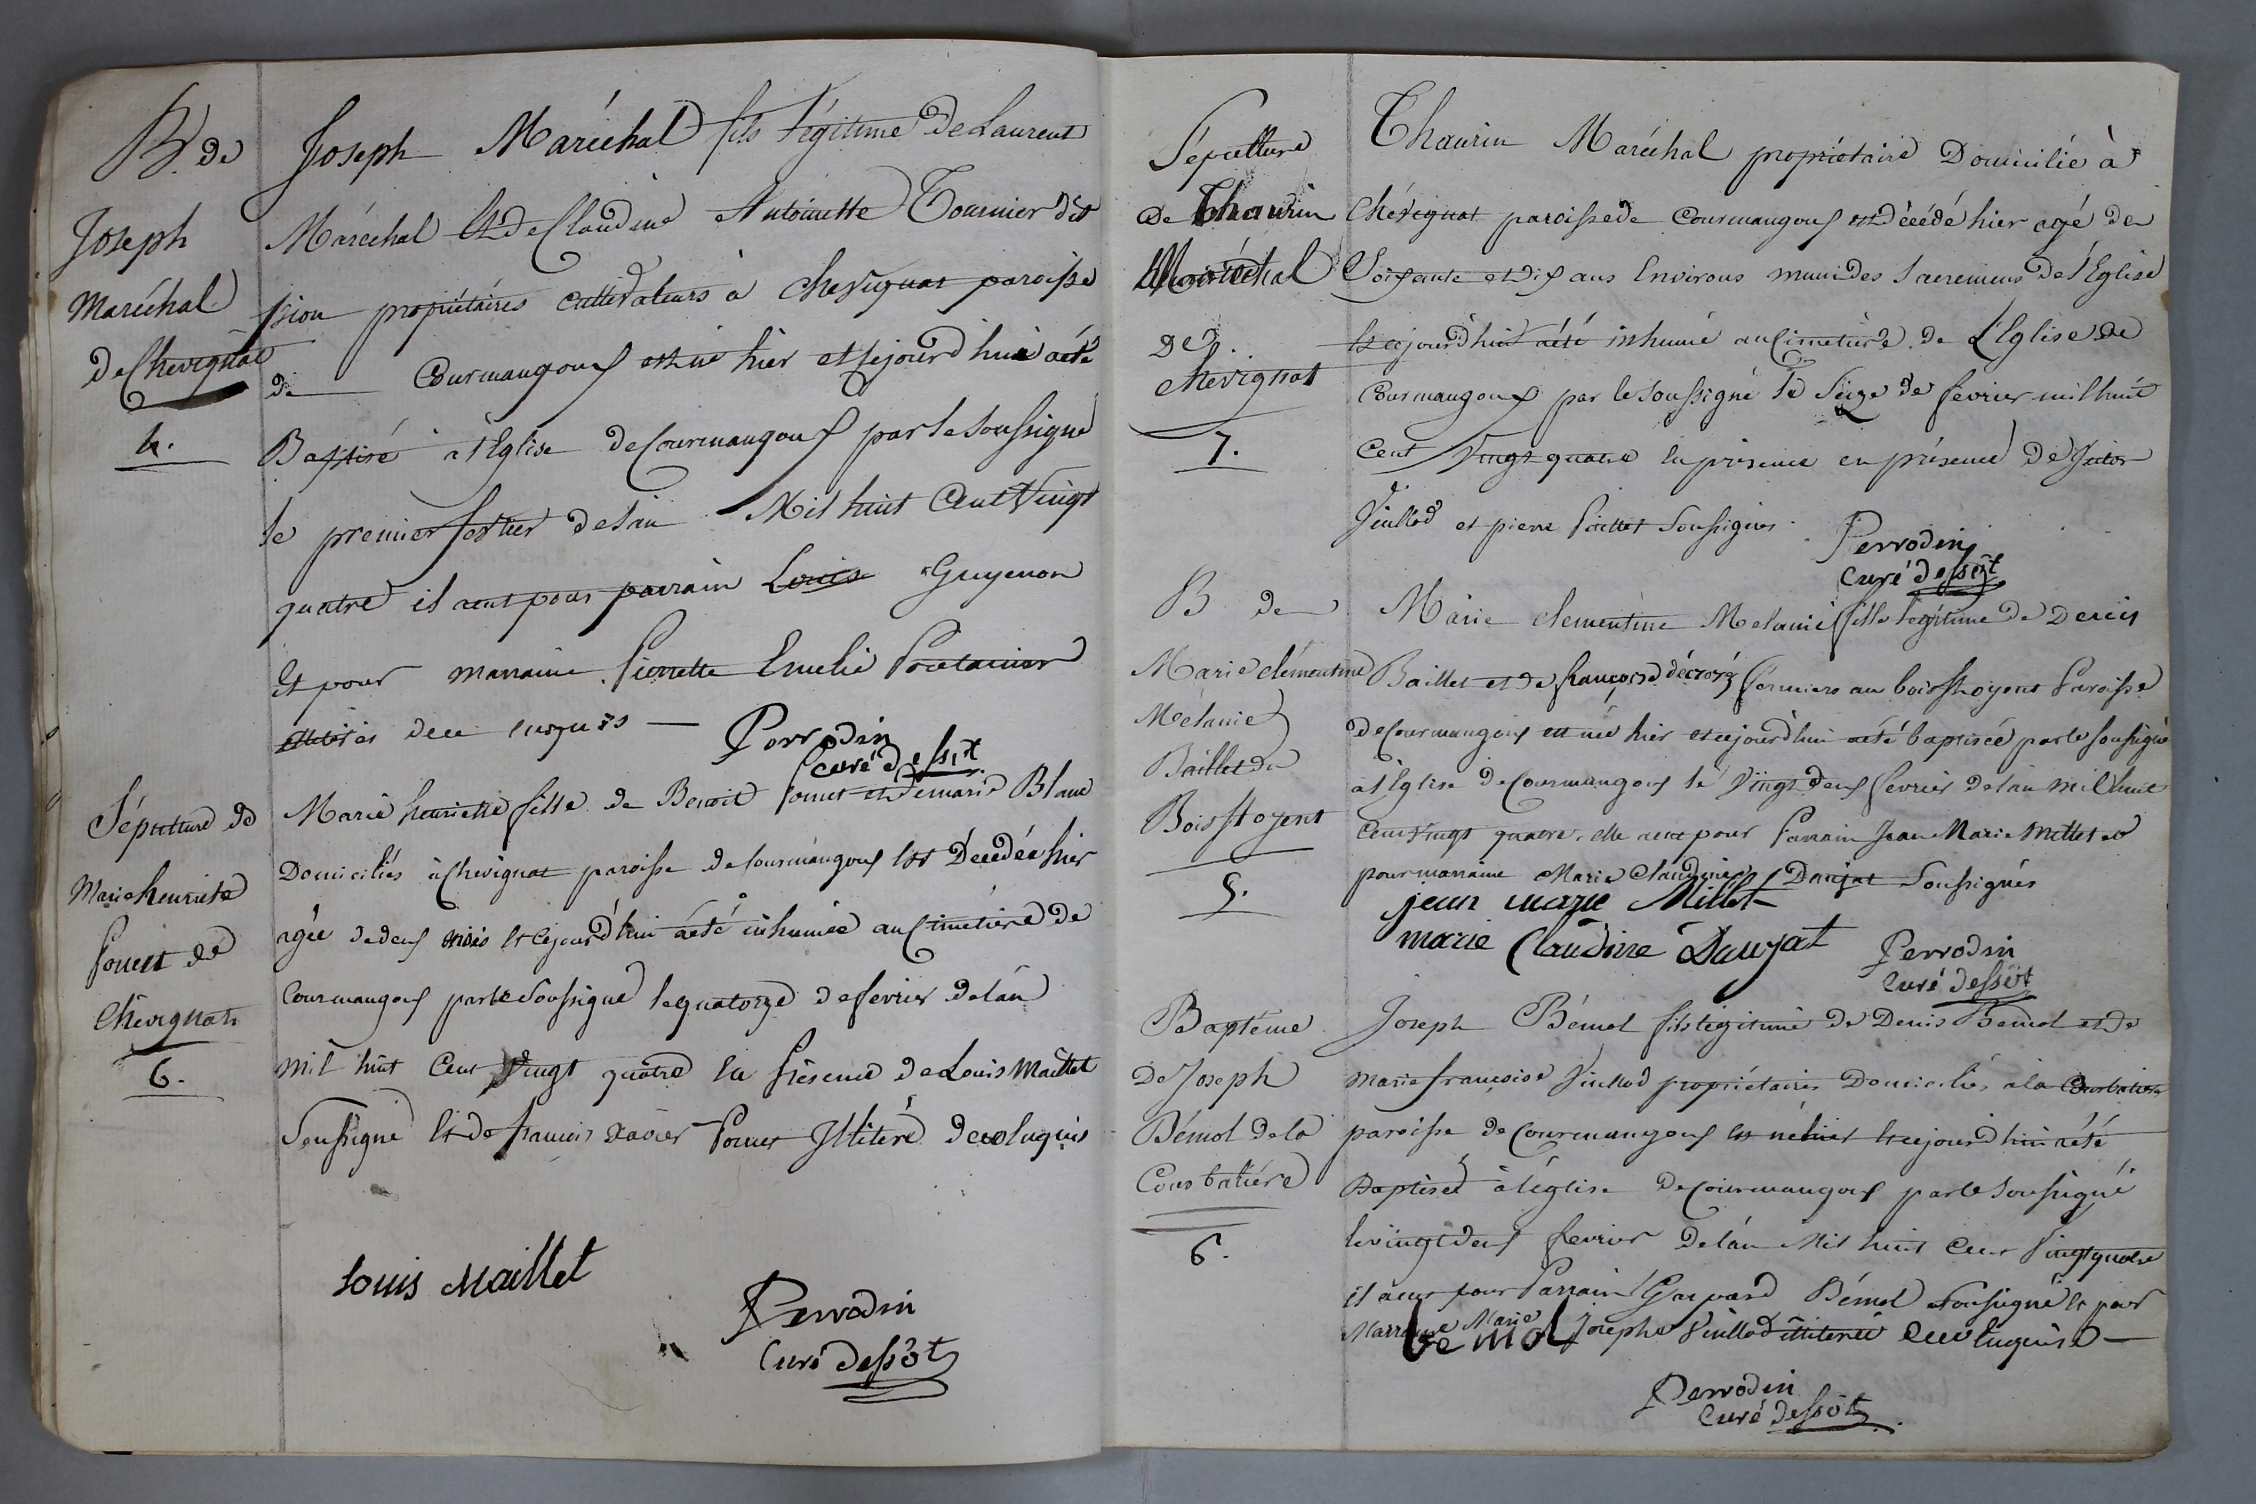 B. de
Joseph
Maréchal
de Chevignat
4.
Joseph Maréchal fils légitime de Laurent
Maréchal Et de Claudine Antoinette Tournier dit
pion propriétaires cultivateurs à Chevignat paroisse
de Courmangoux est né hier et cejourd'hui a été
Baptisé à l'Eglise de Courmangoux par le soussigné
le premier fevrier de l'an Mil huit Cent Vingt
quatre il a eut pour parrain Louis Guyenon
Et pour marraine Pierrette Emelie
illitérés de ce enquis — Perrodin
curé dessst
Sépulture de
Marie henriette
Poncet de
Chevignat
6.
Marie henriette fille de Benoit Poncet et de marie Blanc
Domiciliés à Chevignat paroisse de Courmangoux Est Décédée hier
agée de deux mois Et cejourd'hui a été inhumée au Cimetière de
Courmangoux par le soussigné le quatorze de fevrier de l'an
mil huit Cent Vingt quatre En présence de Louis Maillet
Soussigné Et de francois xavier Poncet Illiteré de ce Enquis
Louis Maillet
Perrodin
Curé dessst
Sépulture
de Thaurin
Maréchal
De
chevignat
7.
Thaurin Maréchal propriétaire Domicilié à
Chévignat paroisse de Courmangoux est décédé hier agé de
Soixante et dix ans Environs muni des sacremens de l'Eglise
Et cejourd'hui a été inhumé au Cimetière de L'Eglise de
Courmangoux par le soussigné le Seize de fevrier mil huit
Cent Vingt quatre En présence en présence de
Vuillod et pierre soussignés.
Perrodin
Curé dessst
B de
Marie clémentine
Mélanie
Baillet du
Bois Stoyent
5.
Marie clementine Melanie fille légitime de Denis
Baillet et de françoise décroré fermiers au bois Stoyent Paroisse
de Courmangoux est née hier et cejourd'hui a été baptisée par le soussigné
à l'Eglise de Courmangoux le Vingt deux fevrier de l'an mil huit
Cent Vingt quatre. elle a eut pour Parrain Jean Marie Millet et
pour marraine Marie Claudine Daujat Soussignés
jean marie Millet
marie Claudine Daujat Perrodin
Curé dessst
Baptême
De Joseph
Bémol de la
Courbatière
6.
Joseph Bémol fils légitime de Denis Bémol et de
marie françoise Vuillod propriétaires Domiciliés à la Courbatière
paroisse de Courmangoux Est né hier Et cejourd'hui a été
Baptisé à l'église de Courmangoux par le soussigné
le vingt deux fevrier de l'an Mil huit Cent Vingt quatre
il a eut pour Parrain Gaspard Bémol soussigné Et pour
Marraine Marie Josephe Vuillod illiterée de ce Enquise —
be mol
Perrodin
Curé dessst